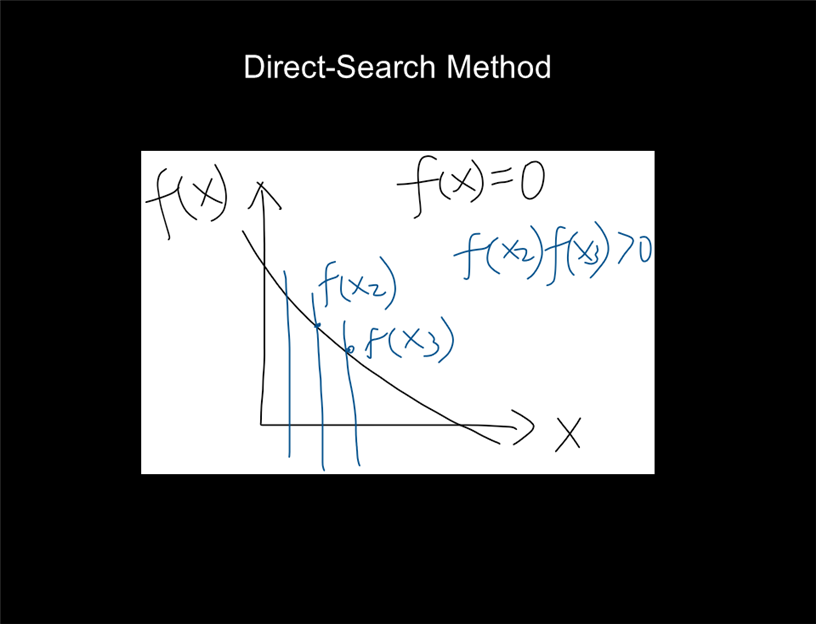 Direct-Search Method
f(x)
f(x)=0
f(x2)f(x3)>0
f(x2)
f(x3)
x